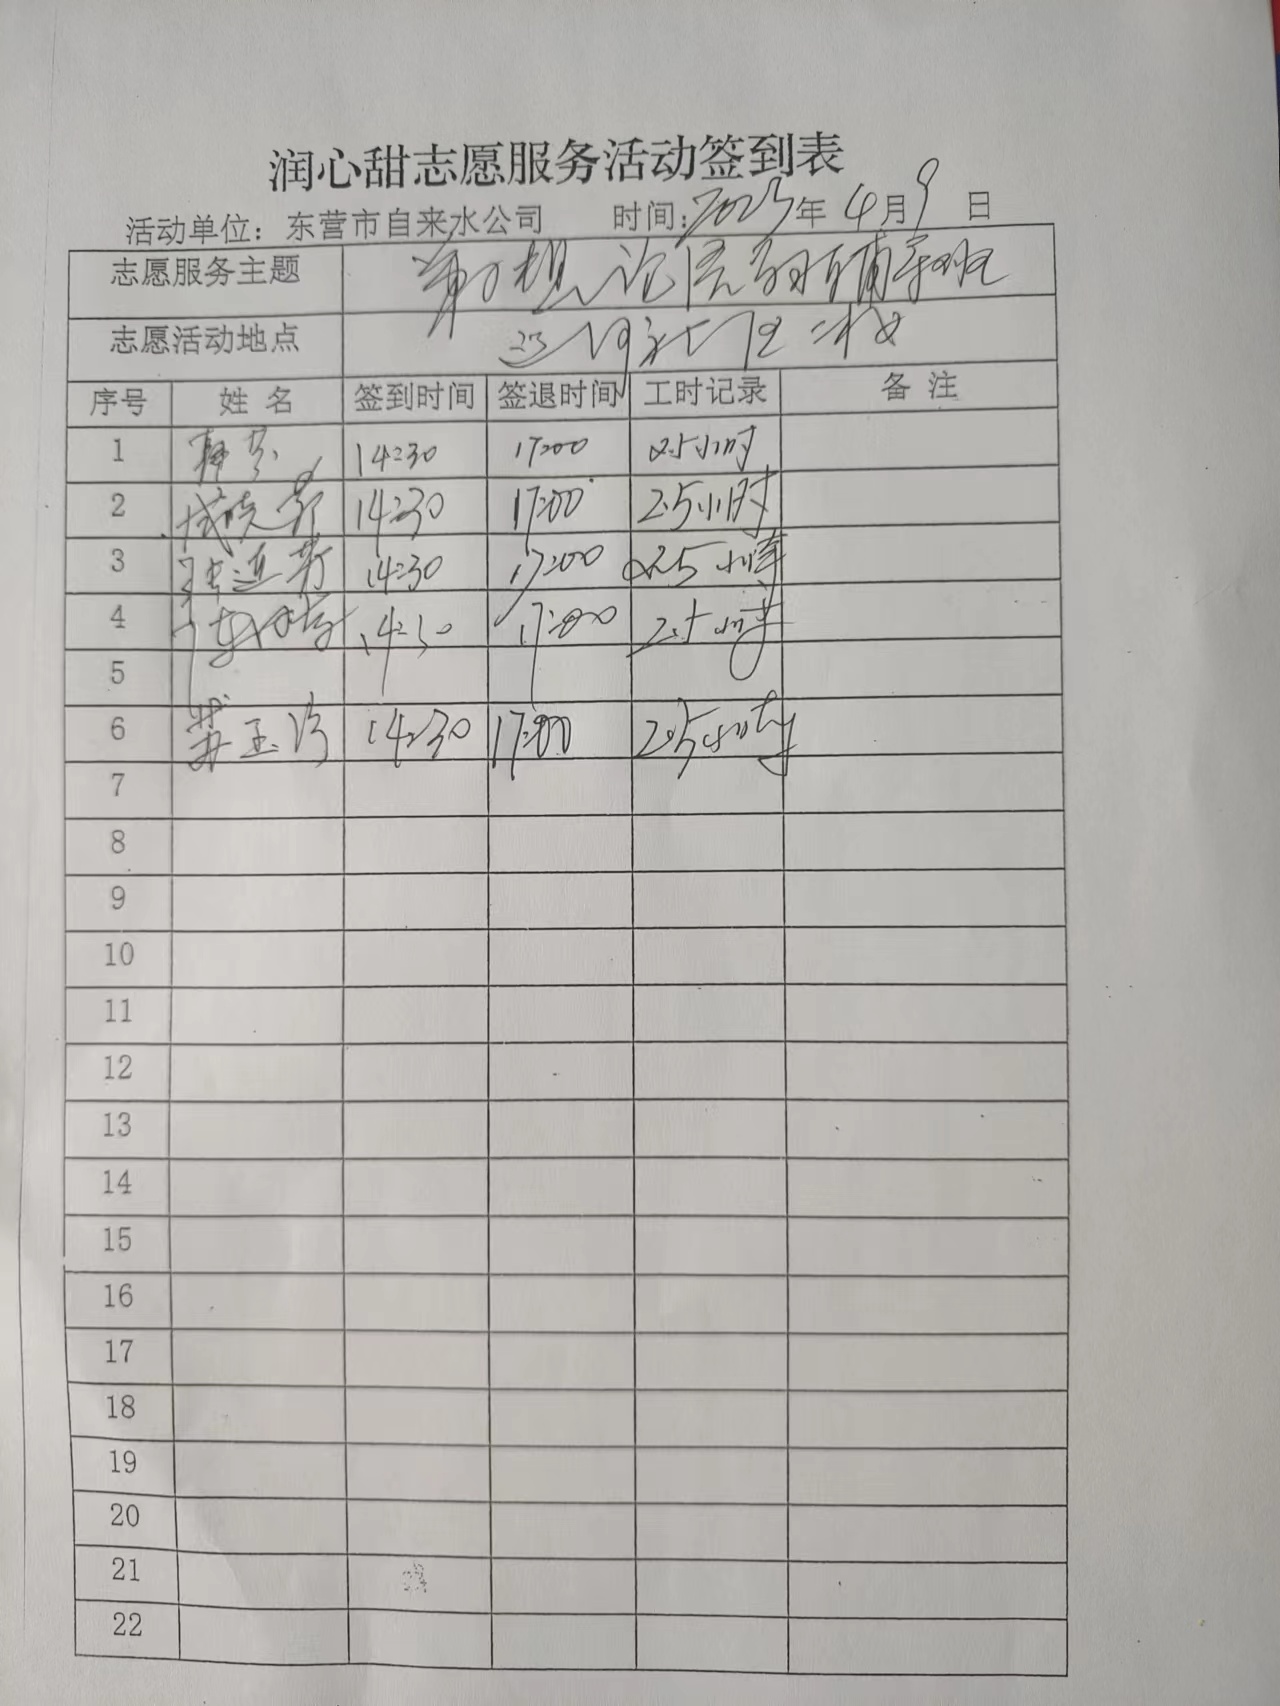 润心甜志愿服务活动签到表
活动单位：东营市自来水公司 时间：2023年4月9日
志愿服务主题 辅导班
志愿活动地点 社区
序号 姓名 签到时间 签退时间 工时记录 备注
1 韩芬 14:30 17:00 2.5小时
2 成晓芳 14:30 17:00 2.5小时
3 张连芳 14:30 17:00 2.5小時
4 14:30 17:00 2.5小时
5
6 玉 14:30 17:00 2.5小时
7
8
9
10
11
12
13
14
15
16
17
18
19
20
21
22